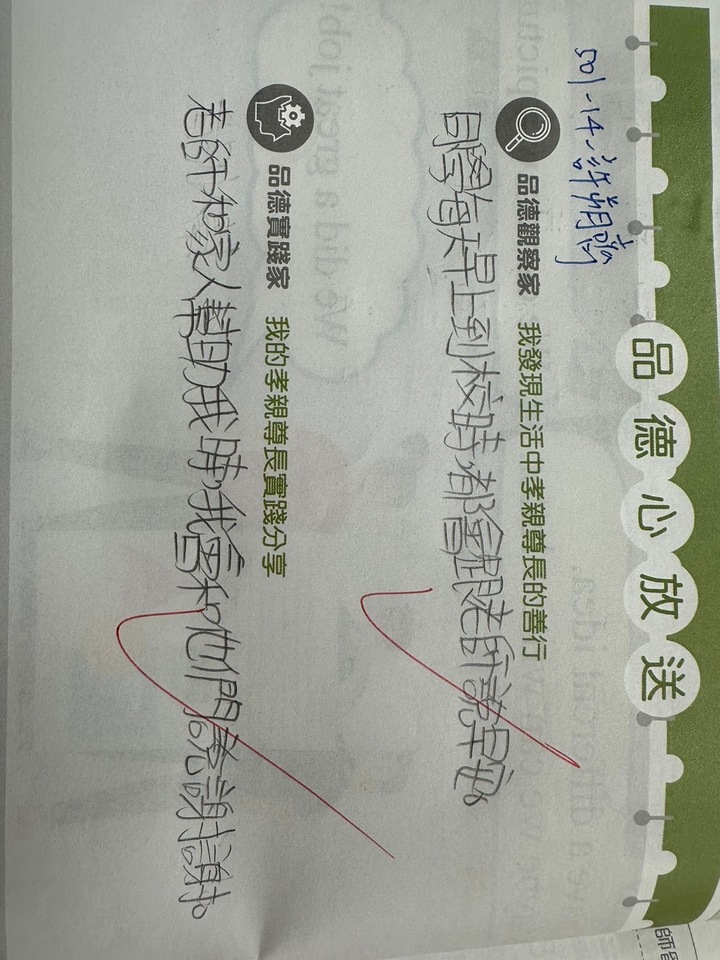 品德心放送
501-14-許
品德觀察家 我發現生活中孝親尊長的善行
同學每天早上到校時都會跟老師說早安。
品德實踐家 我的孝親尊長實踐分享
老師和家人幫助我時我會和他們說謝謝。